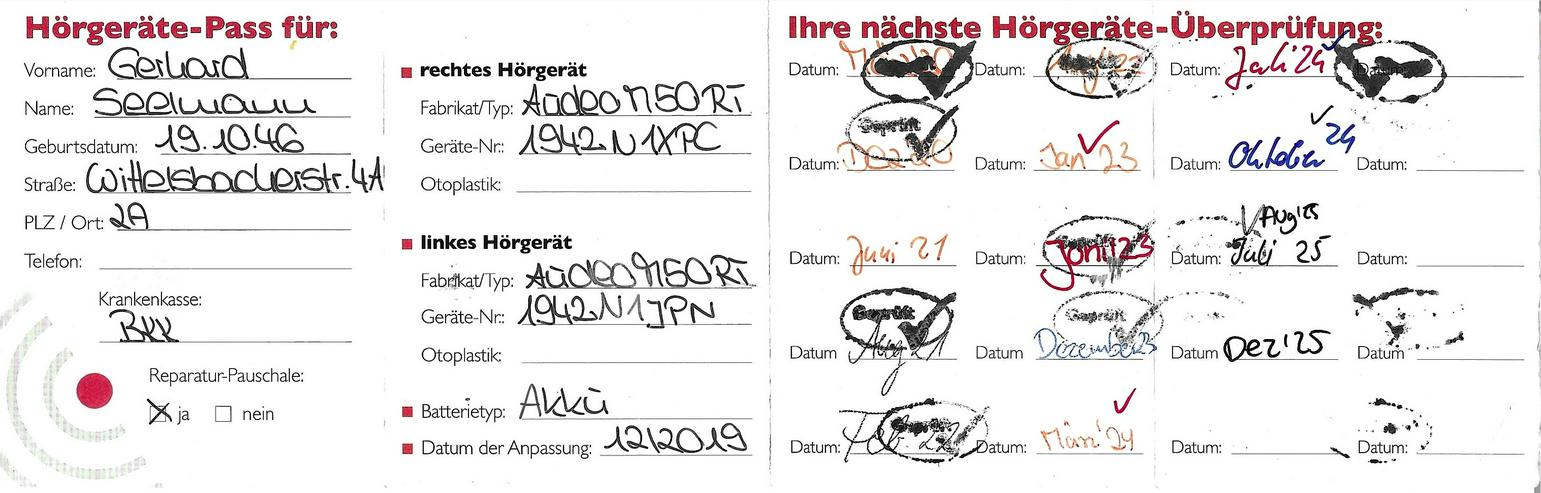 Hörgeräte-Pass für:
Vorname: Gerhard
Name: Seelmann
Geburtsdatum: 19.10.46
Straße: Wittelsbacherstr. 4A
PLZ / Ort: 2A
Telefon:
Krankenkasse:
BKK
Reparatur-Pauschale:
ja nein
rechtes Hörgerät
Fabrikat/Typ: Audeo M50 RT
Geräte-Nr.: 1942N1XPC
Otoplastik:
linkes Hörgerät
Fabrikat/Typ: Audeo M50 RT
Geräte-Nr.: 1942N1JPN
Otoplastik:
Batterietyp: Akku
Datum der Anpassung: 12/2019
Ihre nächste Hörgeräte-Überprüfung:
Datum: Datum: Datum: Juli'24 Datum:
Geprüft
Datum: Dez 20 Datum: Jan'23 Datum: Oktober 24 Datum:
Aug'25
Datum: Juni 21 Datum: Juni'23 Datum: Juli 25 Datum:
Geprüft Geprüft
Datum Aug 21 Datum Dezember23 Datum Dez'25 Datum
Datum: Feb. 22 Datum: März'24 Datum: Datum: